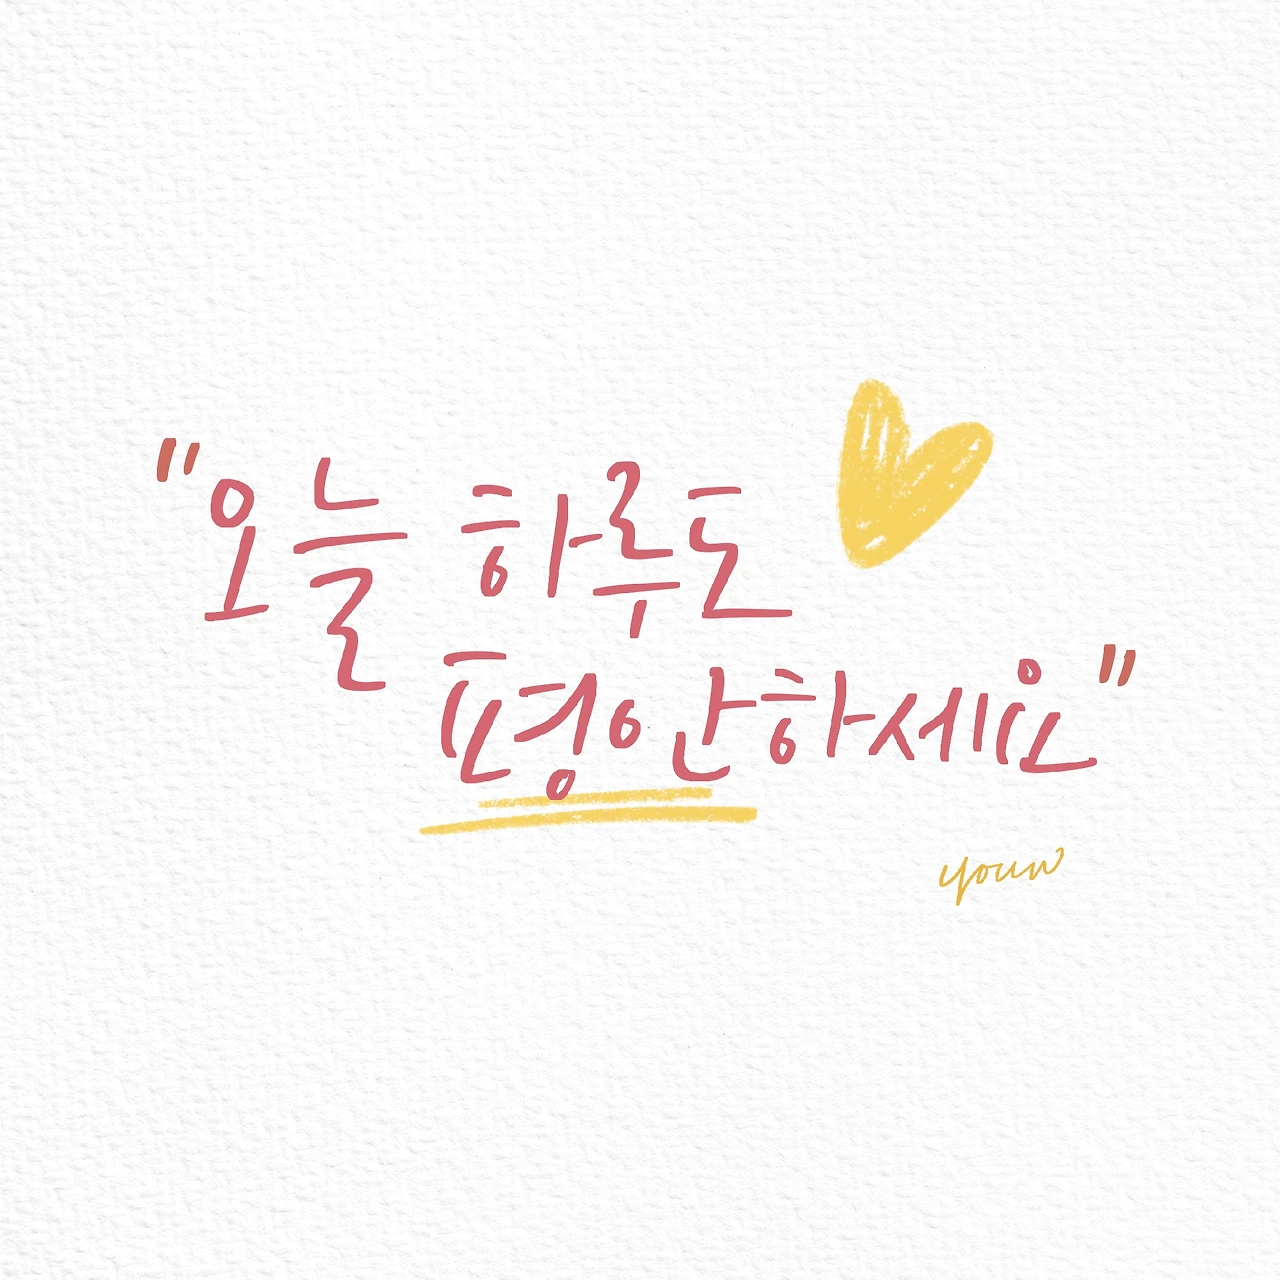 "오늘 하루도
평안하세요"
youw